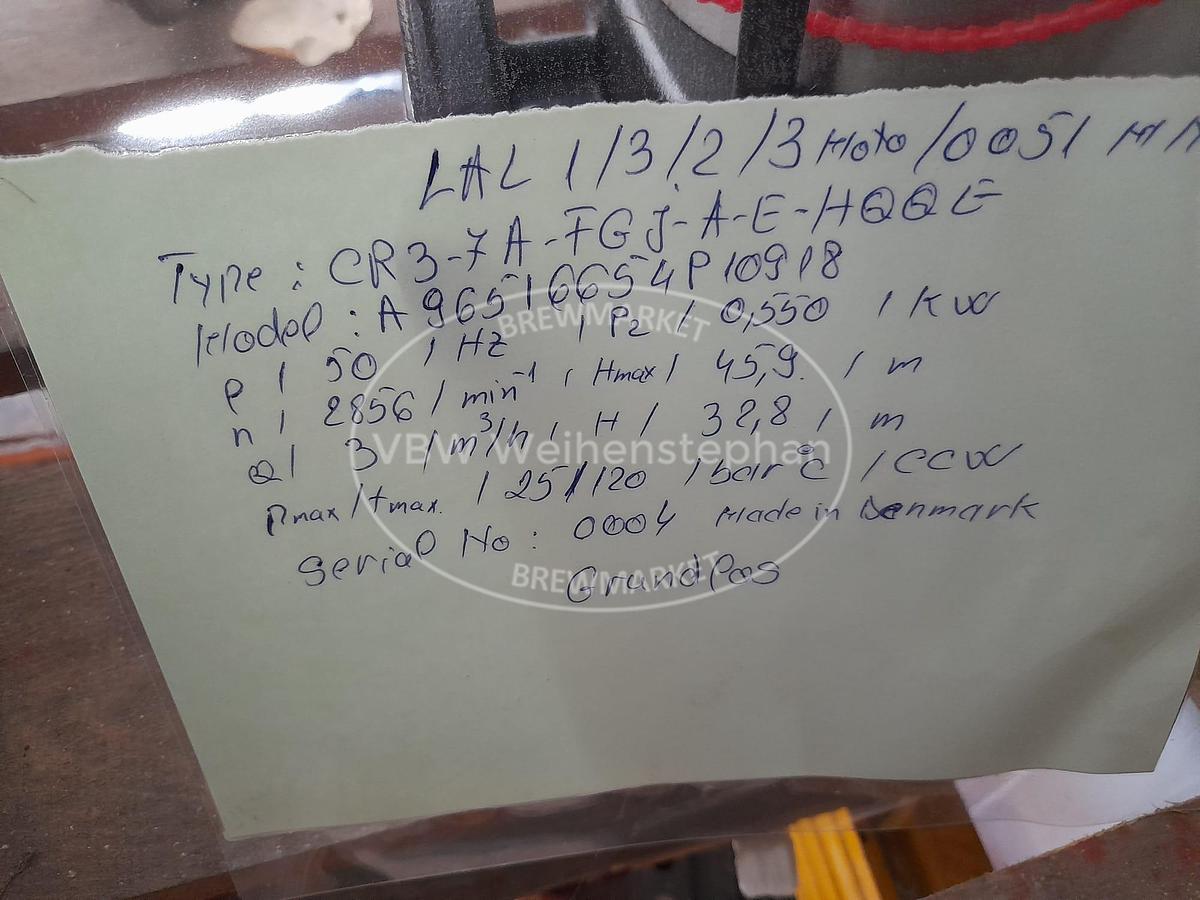 LAL 1/3/2/3 Moto/0051 MM
Type: CR3-7A-FGJ-A-E-HQQE
Model: A 96516654P10918
P / 50 / HZ / P2 / 0,550 / KW
n / 2856 / min-1 / Hmax / 45,9 / m
Q / 3 / m3/h / H / 32,8 / m
Pmax/tmax. / 25/120 /bar°c /CCW
Serial No: 0004 Made in Denmark
Grundfos
BREWMARKET
VBW Weihenstephan
BREWMARKET